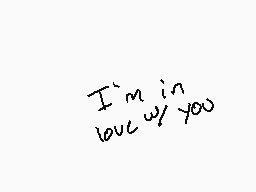 I'm in
love w/ you